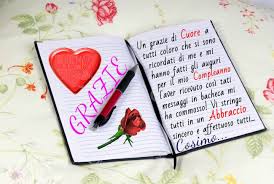 GRAZIE
Un grazie di Cuore a
tutti coloro che si sono
ricordati di me e mi
hanno fatti gli auguri
per il mio Compleanno
l'aver ricevuto così tati
messaggi in bacheca mi
ha commosso! Vi stringo
tutti in un Abbraccio
sincero e affettuoso tutti...
Cosimo...